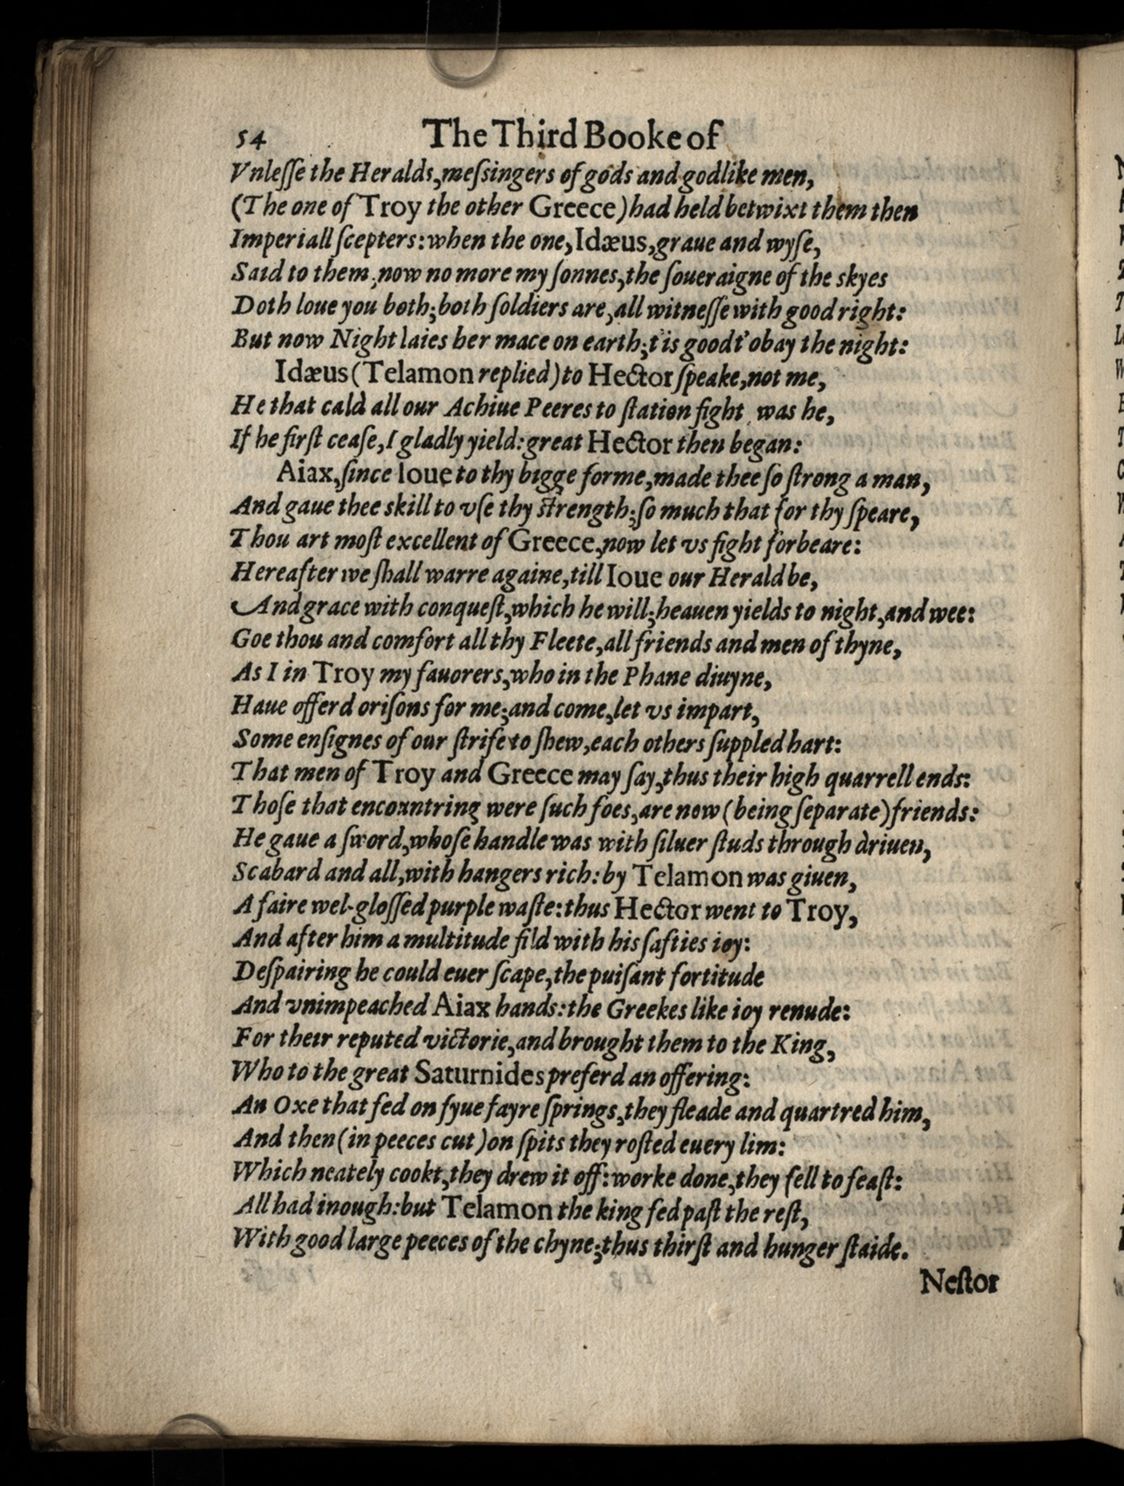 54 The Third Booke of
Vnleſſe the Heralds, meſsingers of gods and godlike men,
(The one of Troy the other Greece) had held betwixt them then
Imperiall ſcepters: when the one, Idæus, graue and wyſe,
Said to them; now no more my ſonnes, the ſoueraigne of the skyes
Doth loue you both; both ſoldiers are, all witneſſe with good right:
But now Night laies her mace on earth; t'is good t'obay the night:
Idæus (Telamon replied) to Hector ſpeake, not me,
He that cald all our Achiue Peeres to ſtation fight, was he,
If he firſt ceaſe, I gladly yield: great Hector then began:
Aiax, ſince Ioue to thy bigge forme, made thee ſo ſtrong a man,
And gaue thee skill to vſe thy ſtrength; ſo much that for thy ſpeare,
Thou art moſt excellent of Greece, now let vs fight forbeare:
Hereafter we ſhall warre againe, till Ioue our Herald be,
And grace with conqueſt, which he will; heauen yields to night, and wee:
Goe thou and comfort all thy Fleete, all friends and men of thyne,
As I in Troy my fauorers, who in the Phane diuyne,
Haue offerd oriſons for me; and come, let vs impart,
Some enſignes of our ſtrife to ſhew, each others ſuppled hart:
That men of Troy and Greece may ſay, thus their high quarrell ends:
Thoſe that encountring were ſuch foes, are now (being ſeparate) friends:
He gaue a ſword, whoſe handle was with ſiluer ſtuds through driuen,
Scabard and all, with hangers rich: by Telamon was giuen,
A faire wel-gloſſed purple waſte: thus Hector went to Troy,
And after him a multitude fild with his ſafties ioy:
Deſpairing he could euer ſcape, the puiſant fortitude
And vnimpeached Aiax hands: the Greekes like ioy renude:
For their reputed victorie, and brought them to the King,
Who to the great Saturnides preferd an offering:
An Oxe that fed on fyue fayre ſprings, they fleade and quartred him,
And then (in peeces cut) on ſpits they roſted euery lim:
Which neately cookt, they drew it off: worke done, they fell to feaſt:
All had inough: but Telamon the king fed paſt the reſt,
With good large peeces of the chyne; thus thirſt and hunger ſtaide.
Neſtor